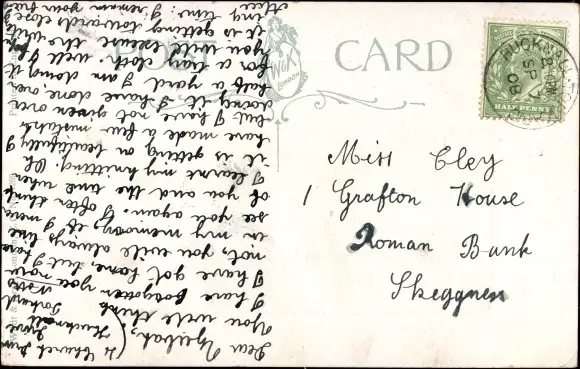 CARD
W&K
LONDON
HALFPENNY
HUCKNALL
SP 7
08
Miss Cley
1 Grafton House
Roman Bank
Skegness
4 Church
Hucknall
Torkard
Notts
Dear
You will think
I have forgotten you now
I have got home, but I have
not, you will always live
in my memory, if I never
see you again. I often think
of you and the time when
I learnt my knitting. Oh
it is getting on beautifully I
have made a few mistakes
but I have not given over
doing it I have done over
half a yard I am doing it
for a well I hope
you will excuse me while
it is getting towards close
ing time. I remain your